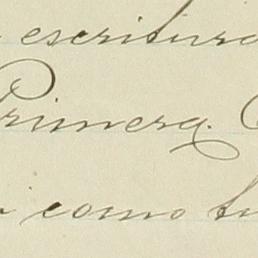 escritura
Primera.
como